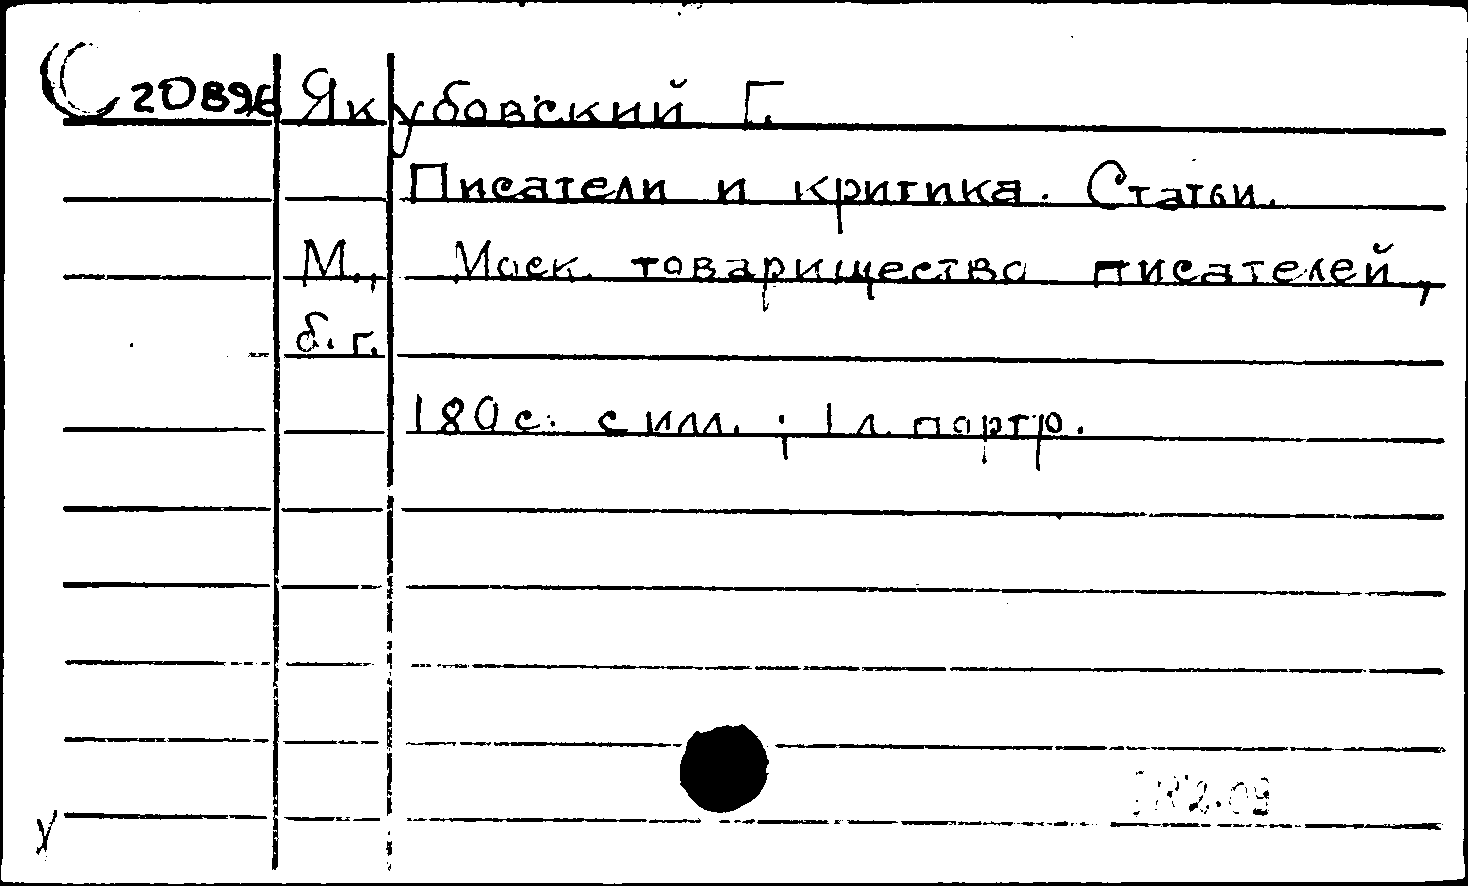 С 20896 Якубовский Г.
Писатели и критика. Статьи.
М., Моск. товарищество писателей,
б.г.
180 с. с илл.; 1 л. портр.